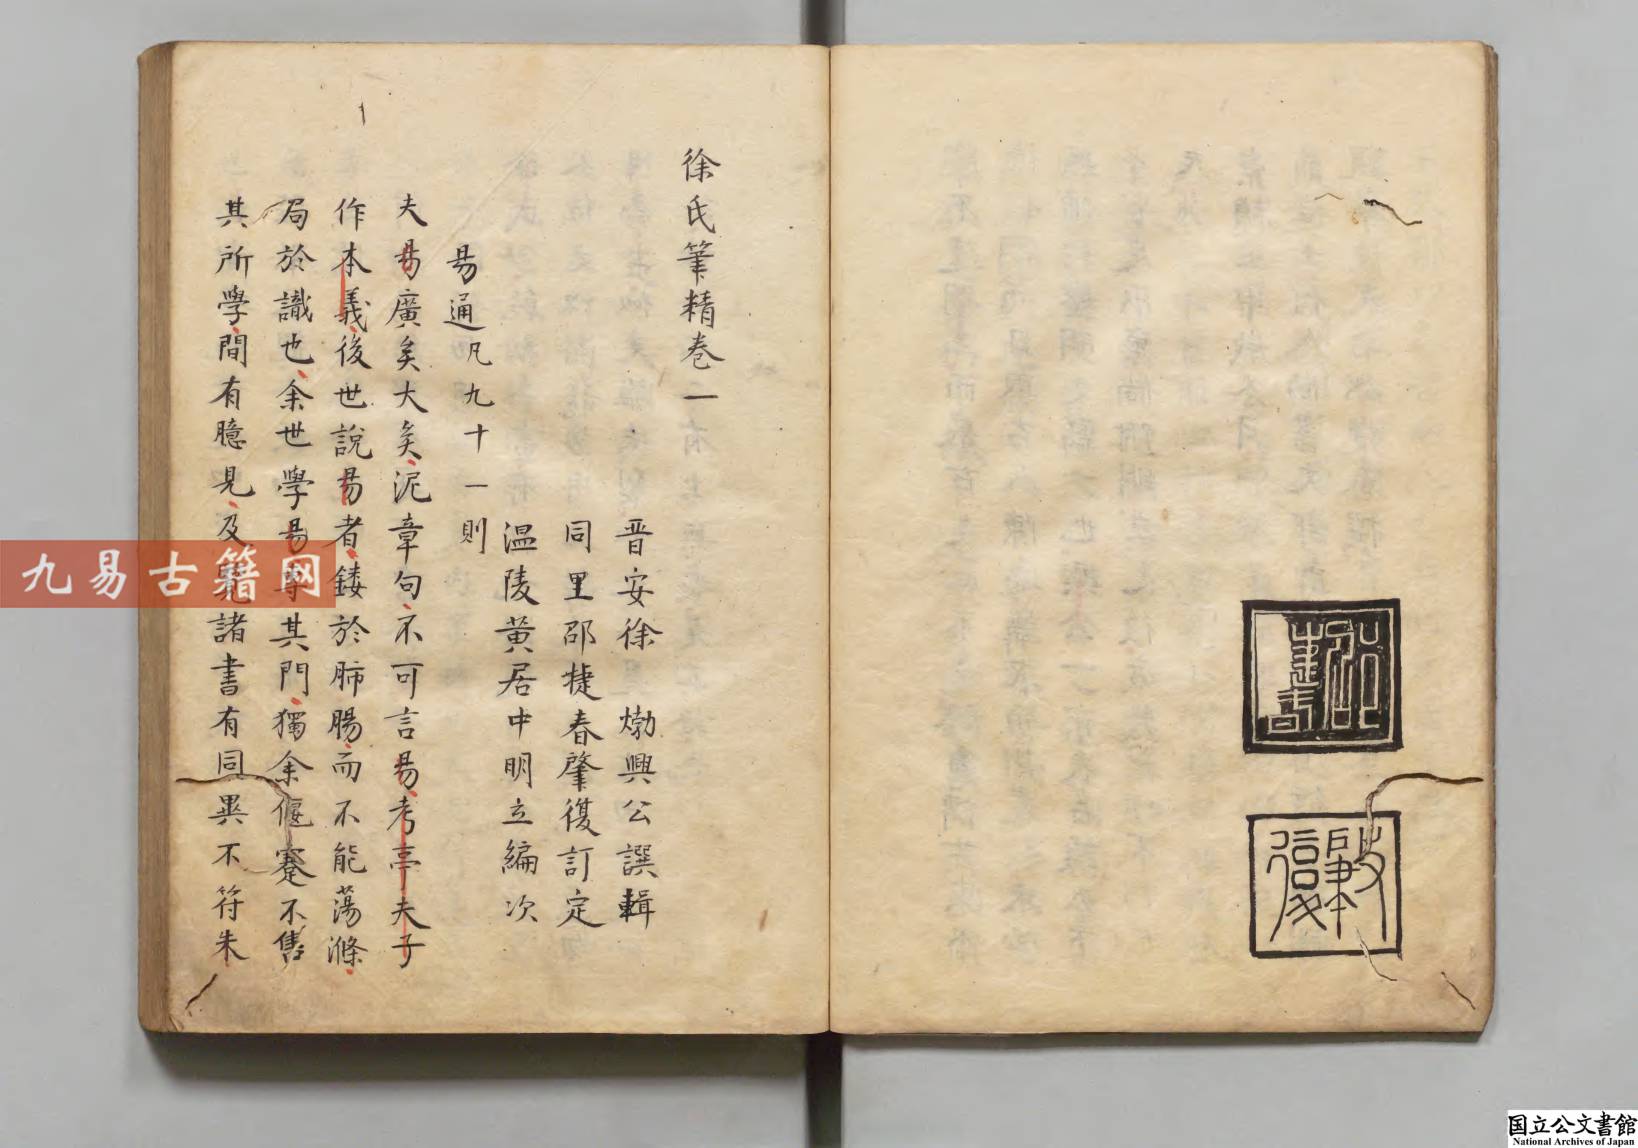 徐氏筆精卷一
晋安徐𤊹興公譔輯
同里邵捷春肇復訂定
温陵黃居中明立編次
易通凡九十一則
夫易廣矣大矣泥章句不可言易考亭夫子
作本義後世說易者鏤於肺腸而不能蕩滌
局於識也余世學易專其門獨余偃蹇不售
其所學間有臆見及覽諸書有同異不符朱
肇復
九易古籍网
国立公文書館
National Archives of Japan